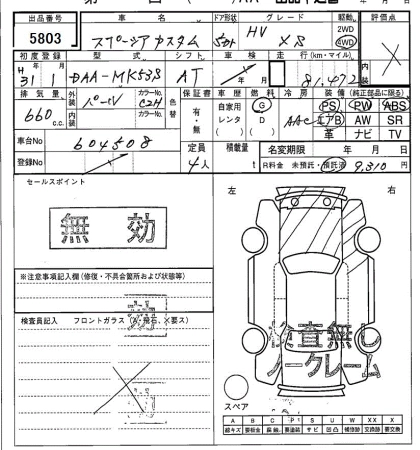 出品番号 車名 ドア形状 グレード 駆動 評価点
5803 スペーシアカスタム 5ドア HV XS 2WD 4WD ×
初度登録 型式 シフト 車検 走行(km・マイル)
H31 1 DAA-MK53S AT 年 月 81,472
排気量 外装 カラーNo. 色替 保証書 車歴 燃料 冷房 装備(純正部品に限る)
660 c.c. パール C2H 有・無 自家用 レンタ G D AAC PS PW ABS
内装 カラーNo. エアB AW SR
革 ナビ TV
車台No 604508
定員 積載量 名変期限 年 月 日
登録No 4人 t R料金 未預託・預託済 9,310円
セールスポイント 左 右
無効
※注意事項記入欄(修復・不具合箇所および状態等)
検査員記入 フロントガラス(A、飛石、×要ス)
検査無し
ノークレーム
スペア
A B C P S U W XX X
線キズ 要板金 腐蝕 要塗装 サビ 凹凸 補修跡 交換跡 要交換